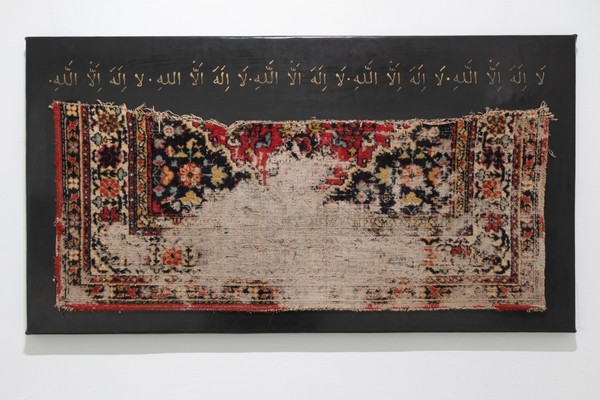 لَا اِلَهَ اِلَّا اللَّه. لَا اِلَهَ اِلَّا اللَّه. لَا اِلَهَ اِلَّا اللَّه. لَا اِلَهَ اِلَّا اللَّه. لَا اِلَهَ اِلَّا اللَّه.